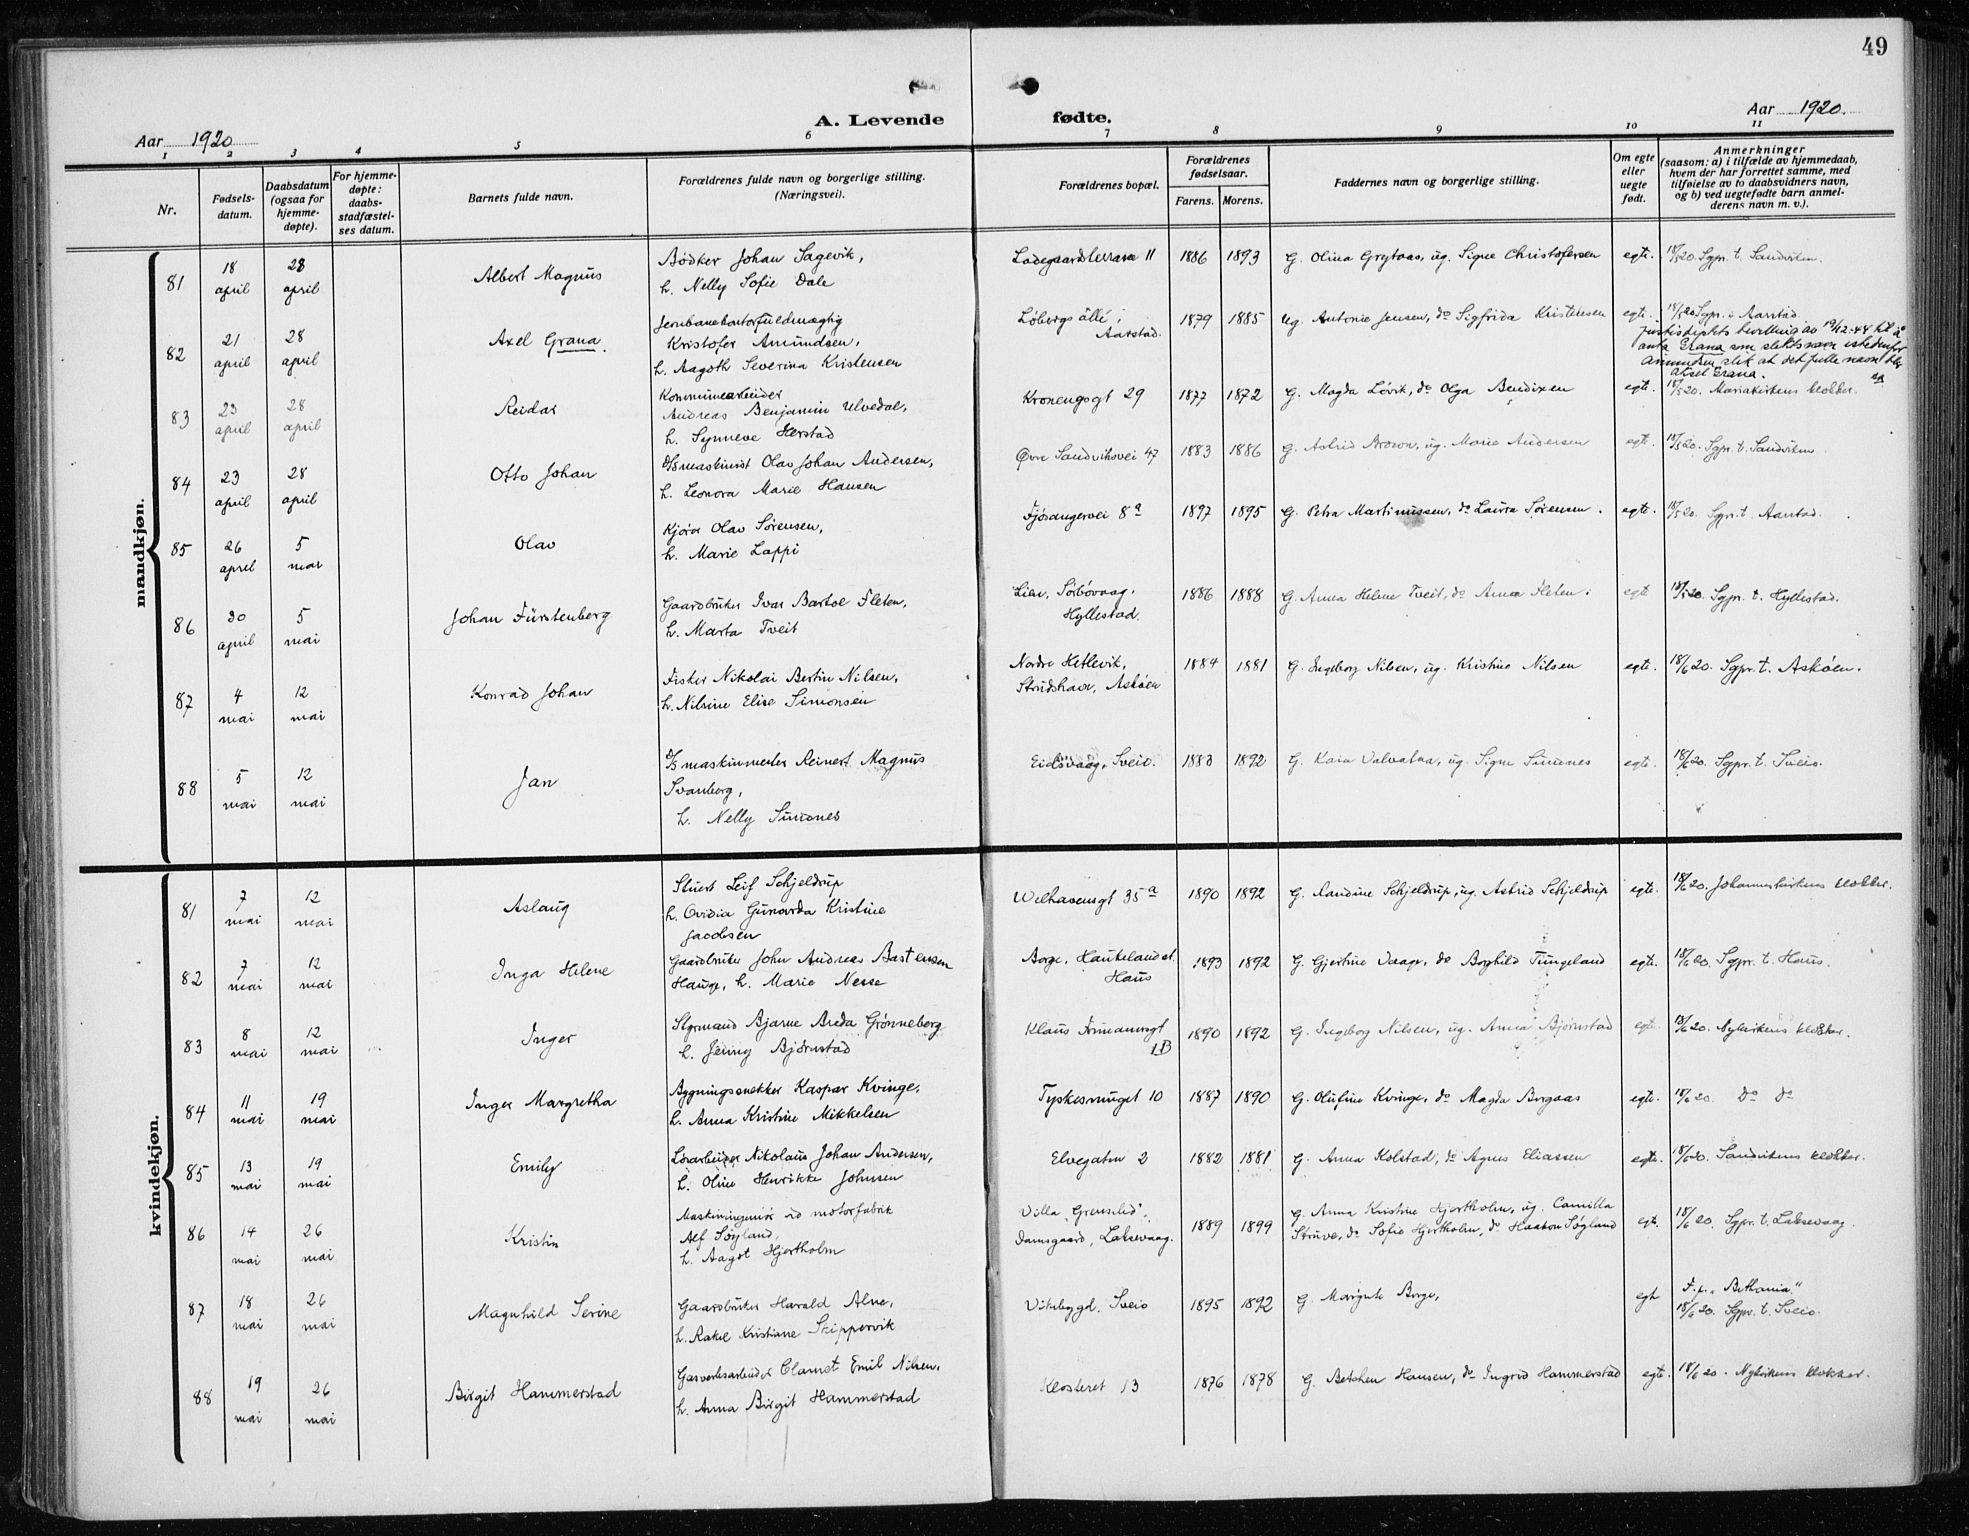 49
Aar 1920
A. Levende fødte.
Aar 1920.
1 2 3 4 5 6 7 8 9 10 11
Nr.
Fødsels-
datum.
Daabsdatum
(ogsaa for
hjemme-
døpte).
For hjemme-
døpte:
daabs-
stadfæstel-
ses datum.
Barnets fulde navn.
Forældrenes fulde navn og borgerlige stilling.
(Næringsvei).
Forældrenes bopæl.
Forældrenes
fødselsaar.
Farens. Morens.
Faddernes navn og borgerlige stilling.
Om egte
eller
uegte
født.
Anmerkninger
(saasom: a) i tilfælde av hjemmedaab,
hvem der har forrettet samme, med
tilføielse av to daabsvidners navn,
og b) ved uegtefødte barn anmel-
derens navn m. v.).
mandkjøn.
81
18 april
28 april
Albert Magnus
Bødker Johan Sagevik,
h. Nelly Sofie Dale
Ladegaardsterrasse 11
1886 1893
G. Olina Grytaas, ug. Signe Christofersen
egte.
18/5 20. Sgpr. t. Sandviken.
82
21 april
28 april
Axel Grana.
Jernbanekontorfuldmægtig
Kristofer Amundsen,
h. Aagoth Severina Kristensen
Løbergs allé,
Aarstad.
1879 1885
Ug. Antonie Jensen, do Sigfrida Kristensen
egte.
18/5 20 Sgpr. i Aarstad.
Justisdepts bevilling av 10/12-48 til å
anta Grana som slektsnavn istedenfor
Amundsen slik at det fulle navn blir
Aksel Grana.
83
23 april
28 april
Reidar
Kommunearbeider
Andreas Benjamin Ulvedal,
h. Synneve Herstad
Kronengsgt 29
1877 1872
G. Magda Løvik, do Olga Bendixen
egte.
18/5 20. Mariakirkens klokker.
84
23 april
28 april
Otto Johan
D/S maskinist Olav Johan Andersen,
h. Leonora Marie Hansen
Øvre Sandviksvei 47
1883 1886
G. Astrid Brown, ug. Marie Andersen
egte.
18/5 20. Sgpr. t. Sandviken.
85
26 april
5 mai
Olav
Kjører Olav Sørensen,
h. Marie Lappi
Fjøsangervei 8a
1897 1895
G. Petra Martinussen, do Laura Sørensen.
egte.
18/5 20. Sgpr. t. Aarstad.
86
30 april
5 mai
Johan Fürstenberg
Gaardbruker Ivar Bartol Fleten,
h. Marta Tveit
Lien, Sørbøvaag,
Hyllestad.
1886 1888
G. Anna Helene Tveit, do Anna Fleten.
egte
18/5 20. Sgpr. t. Hyllestad.
87
4 mai
12 mai
Konrad Johan
Fisker Nikolai Bertin Nilsen,
h. Nilsine Elise Simonsen
Nordre Hetlevik,
Strudshavn, Askøen
1884 1881
G. Ingeborg Nilsen, ug. Kristine Nilsen
egte.
18/6 20. Sgpr. t. Askøen.
88
5 mai
12 mai
Jan
D/S maskinmester Reinert Magnus
Svanberg,
h. Nelly Simones
Eidsvaag, Sveio.
1883 1892
G. Kaia Valvatna, ug. Signe Simones
egte.
18/6 20. Sgpr. t. Sveio.
kvindekjøn.
81
7 mai
12 mai
Aslaug
Stuert Leif Schjeldrup
h. Ovidia Gunarda Kristine
Jacobsen
Welhavensgt 35a
1890 1892
G. Randine Schjeldrup, ug. Astrid Schjeldrup
egte.
18/6 20. Johanneskirkens klokker.
82
7 mai
12 mai
Inga Helene
Gaardbruker John Andreas Bastensen
Hauge, h. Marie Nesse
Borge, Haukeland st.
Haus
1893 1892
G. Gjertine Vaage, do Borghild Tungeland
egte.
18/6 20. Sgpr. t. Haus.
83
8 mai
12 mai
Inger
Styrmand Bjarne Breda Grønneberg
h. Jenny Bjørnstad
Klaus Formannsgt
1B
1890 1892
G. Ingeborg Nilsen, ug. Anna Bjørnstad
egte.
18/6 20. Nykirkens klokker.
84
11 mai
19 mai
Inger Margretha
Bygningssnekker Kaspar Kvinge,
h. Anna Kristine Mikkelsen
Tyskesmuget 10
1887 1890
G. Olufine Kvinge, do Magda Borgaas
egte.
18/6 20. Do Do
85
13 mai
19 mai
Emily
Løsarbeider Nikolaus Johan Andersen,
h. Oline Henrikke Johnsen
Elvegaten 2
1882 1881
G. Anna Kolstad, do Agnes Eliassen
egte.
18/6 20. Sandvikens klokker.
86
14 mai
26 mai
Kristin
Maskiningeniør ved motorfabrik
Alf Søyland,
h. Aagot Hjortholm
Villa "Grenslid",
Damsgaard, Laksevaag.
1889 1899
G. Anna Kristine Hjortholm, ug. Camilla
Struve, do Sofie Hjortholm, do Haakon Søyland
egte.
18/6 20. Sgpr. t. Laksevaag.
87
18 mai
26 mai
Magnhild Serine
Gaardbruker Harald Alne,
h. Rakel Kristiane Skippervik
Vikebygd, Sveio
1895 1892
G. Margrete Borge,
egte
F. p. "Bethania"
18/6 20. Sgpr. t. Sveio.
88
19 mai
26 mai
Birgit Hammerstad
Gasverksarbeider Clamet Emil Nilsen,
h. Anna Birgit Hammerstad
Klosteret 13
1876 1878
G. Betchen Hansen, do Ingrid Hammerstad
egte.
18/6 20. Nykirkens klokker.